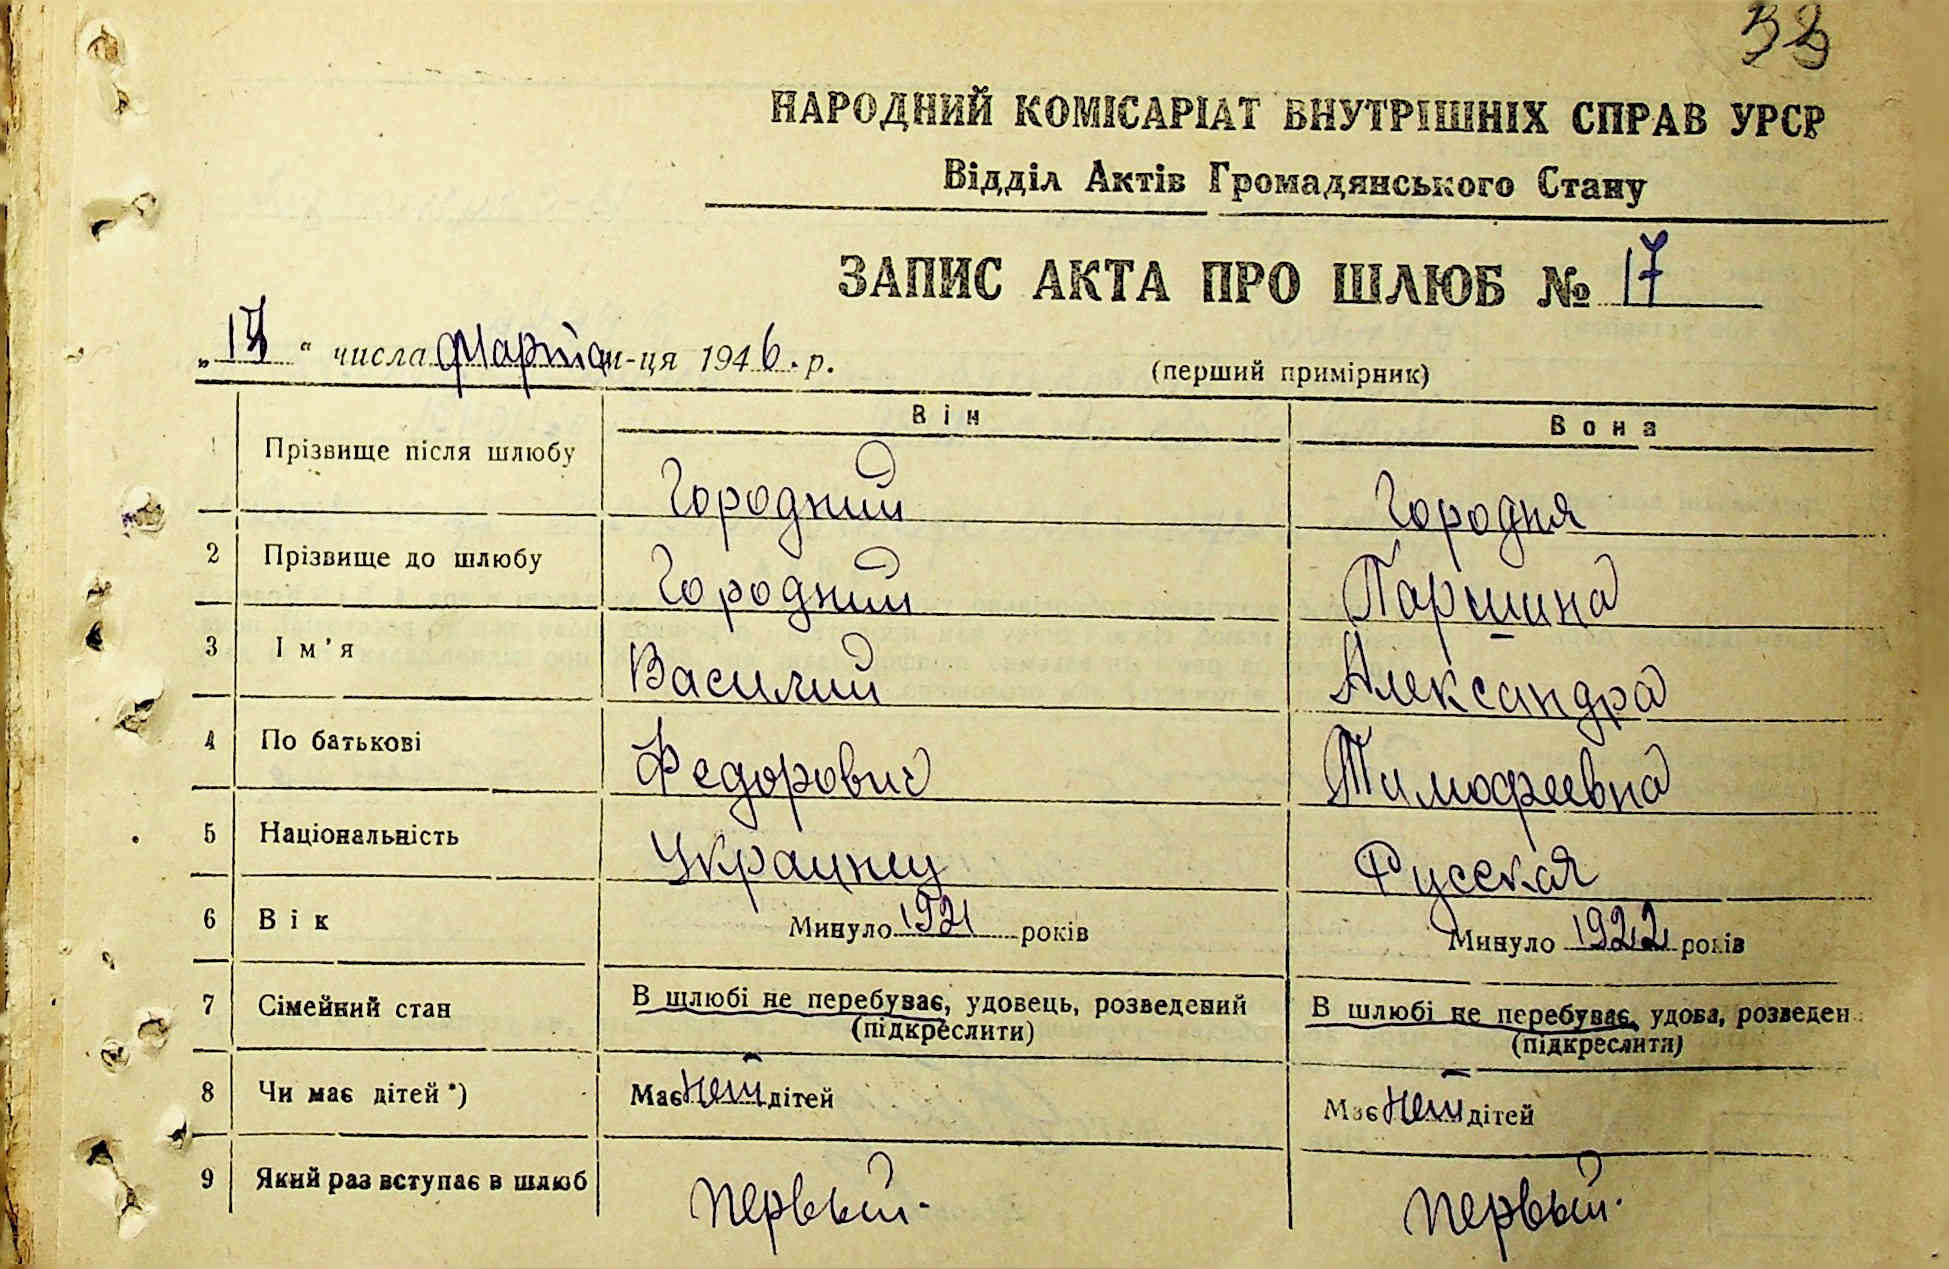 НАРОДНИЙ КОМІСАРІАТ ВНУТРІШНІХ СПРАВ УРСР
Відділ Актів Громадянського Стану
ЗАПИС АКТА ПРО ШЛЮБ № 17
" числа Марта м-ця 1946. р.
(перший примірник)
Він Вона
1 Прізвище після шлюбу Городний Городня
2 Прізвище до шлюбу Городний Паршина
3 Ім'я Василий Александра
4 По батькові Федорович Тимофеевна
5 Національність Украинец Русская
6 Вік Минуло 1921 років Минуло 1922 років
7 Сімейний стан В шлюбі не перебуває, удовець, розведений В шлюбі не перебуває, удова, розведен
(підкреслити) (підкреслити)
8 Чи має дітей *) Має нет дітей Має нет дітей
9 Який раз вступає в шлюб первый. первый.